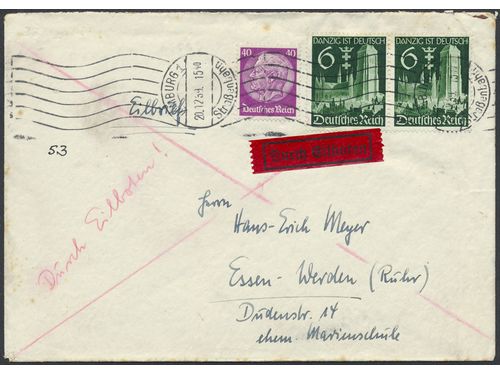 BURG 1
20.12.39. 15⁰⁰
Straßenbahn
40 40
Deutsches Reich
DANZIG IST DEUTSCH
6
Deutsches Reich
DANZIG IST DEUTSCH
6
Deutsches Reich
Eilbrief
53
Durch Eilboten
Durch Eilboten!
Herrn
Hans-Erich Meyer
Essen-Werden (Ruhr)
Dudenstr. 14
ehem. Marienschule